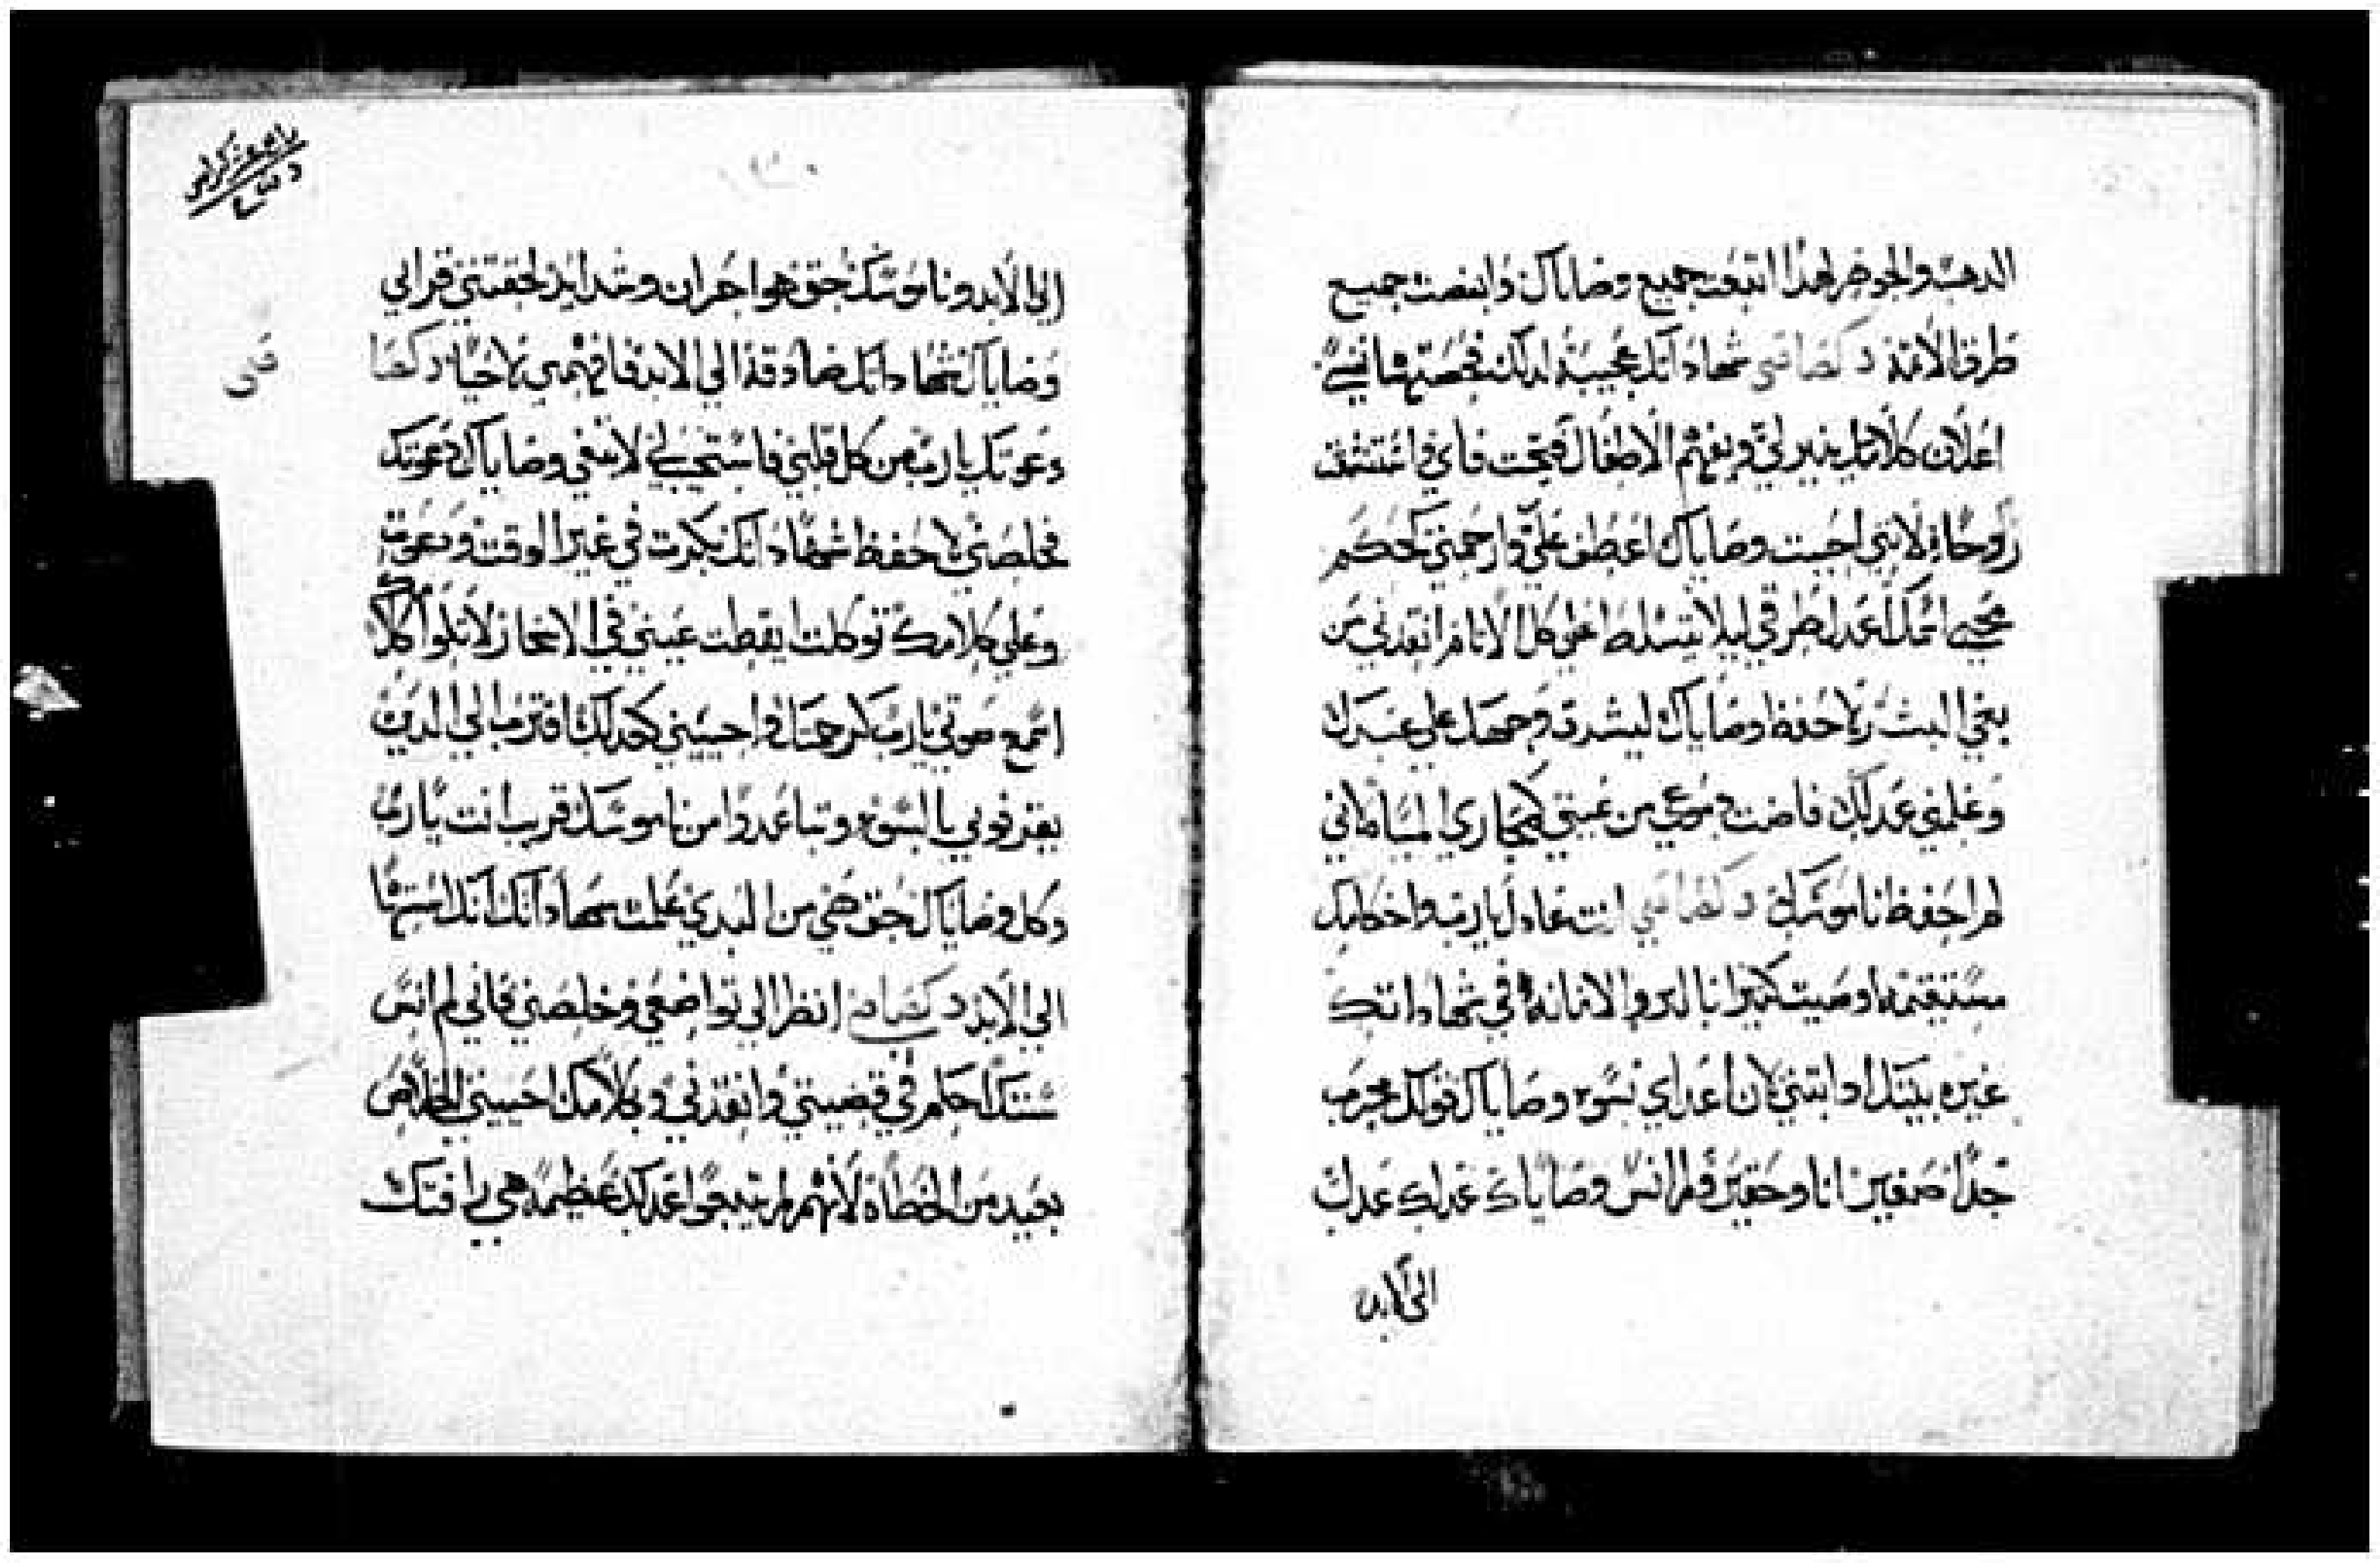 الدهب والجوهر لهذا اتبعت جميع وصاياك وابغضت جميع
طرق الاثمة شهاداتك عجيبة لذلك فحصتها نفسي
اعلان كلامك ينير لي ويفهم الاطفال فتحت فاي واستنشقت
روحا لانني احببت وصاياك اعطف علي وارحمني كحكم
محبي اسمك اعدل طرقي ليلا يتسلط علي كل الاثام انقدني من
بغي البشر لاحفظ وصاياك ليشرق وجهك علي عبدك
وعلمني عدلك فاضت دموعي من عيني كمجاري المياه لاني
لم احفظ ناموسك انت عادل يارب واحكامك
مستقيمة اوصيت كثيرا بالبر والامانة في شهاداتك
غيره بيتك ادابتني لان اعداي نسوا وصاياك قولك مجرب
جدا صغير انا وحقير ولم انس وصاياك عدلك عدل
الي الابد
الي الابد وناموسك حق هو احزان وشدايد لحقتني قراني
وصاياك شهاداتك صادقة الي الابد فافهمني لاحيا
دعوتك يارب من كل قلبي فاستجب لي لابتغي وصاياك دعوتك
فخلصني لاحفظ شهاداتك بكرت في غير الوقت ودعوت
وعلي كلامك توكلت ايقظت عيني في الاسحار لاتلوا كلامك
اسمع صوتي يارب كرحمتك واحييني كعدلك اقترب الي الدين
يعرفوني بالسوء وتباعدوا من ناموسك قريب انت يارب
وكل وصاياك حق هي من البدي علمت شهاداتك انك اسستها
الي الابد انظر الي تواضعي وخلصني فاني لم انس
سنتك احكم في قضيتي وانقدني وبكلامك احييني الخلاص
بعيد من الخطاة لانهم لم يتبعوا عدلك عظيمة هي رافتك